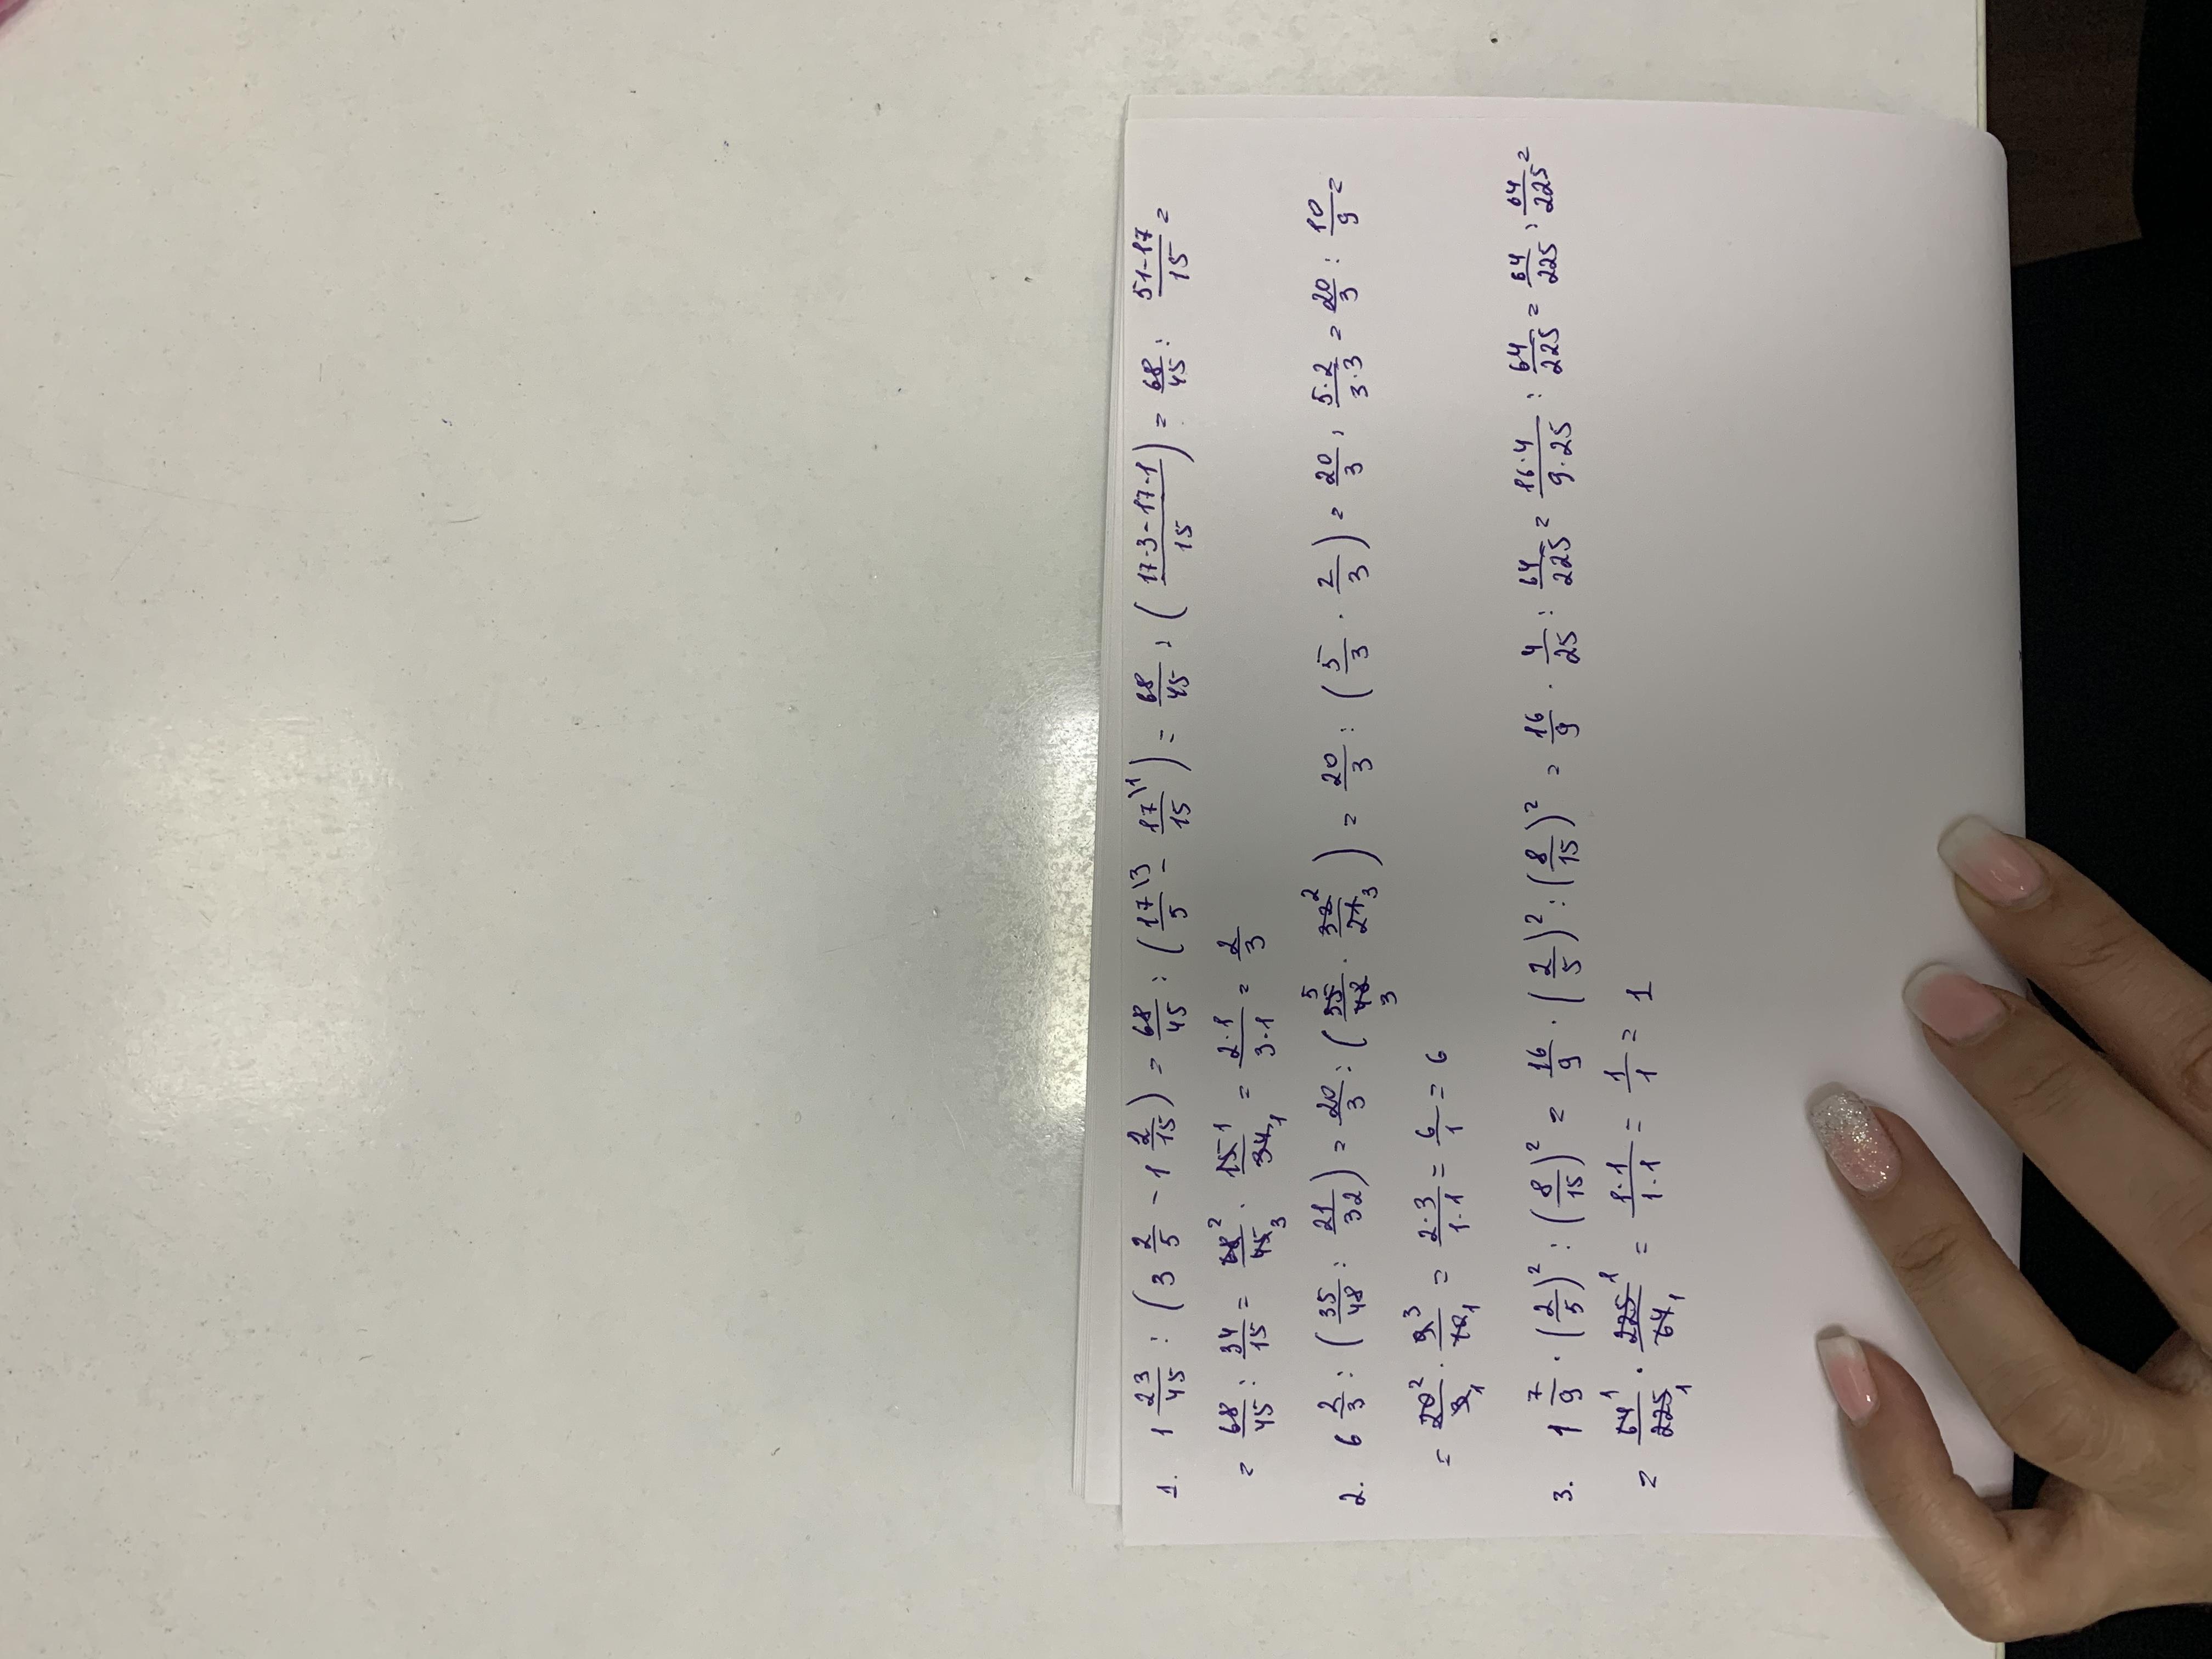 1. 1 23/45 : (3 2/5 - 1 2/15) = 68/45 : (17\3/5 - 17\1/15) = 68/45 : (17·3-17·1/15) = 68/45 : 51-17/15 =
= 68/45 : 34/15 = 68²/45₃ · 15¹/34₁ = 2·1/3·1 = 2/3
2. 6 2/3 : (35/48 : 21/32) = 20/3 : (35⁵/48₃ · 32²/21₃) = 20/3 : (5/3 · 2/3) = 20/3 : 5·2/3·3 = 20/3 : 10/9 =
= 20²/3₁ · 9³/10₁ = 2·3/1·1 = 6/1 = 6
3. 1 7/9 · (2/5)² : (8/15)² = 16/9 · (2/5)² : (8/15)² = 16/9 · 4/25 : 64/225 = 16·4/9·25 : 64/225 = 64/225 : 64/225 =
= 64¹/225₁ · 225¹/64₁ = 1·1/1·1 = 1/1 = 1